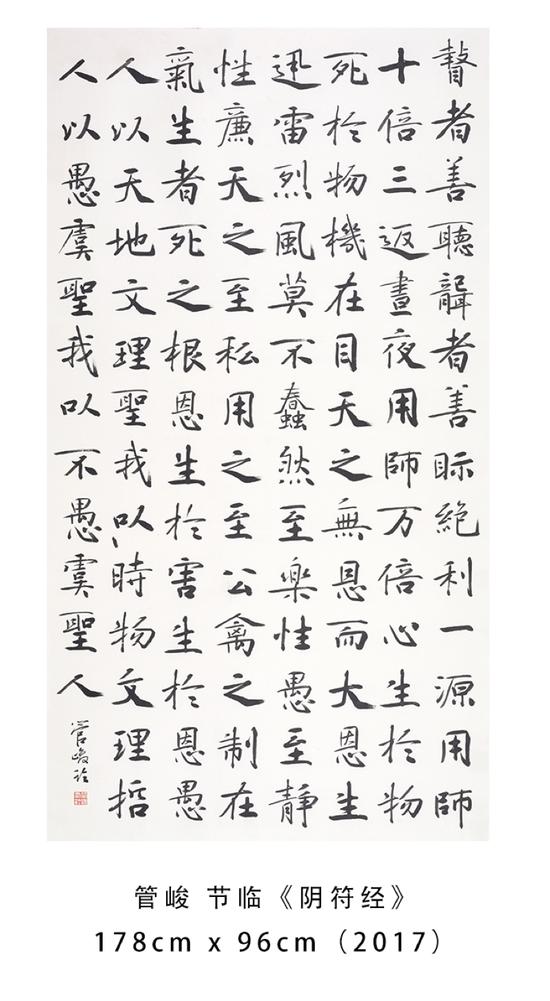 瞽者善聽聾者善眎絕利一源用師
十倍三返晝夜用師万倍心生於物
死於物機在目天之無恩而大恩生
迅雷烈風莫不蠢然至樂性愚至静
性廉天之至私用之至公禽之制在
氣生者死之根恩生於害生於恩愚
人以天地文理聖我以時物文理哲
人以愚虞聖我以不愚虞聖人
管峻臨
管峻 节临《阴符经》
178cm x 96cm（2017）